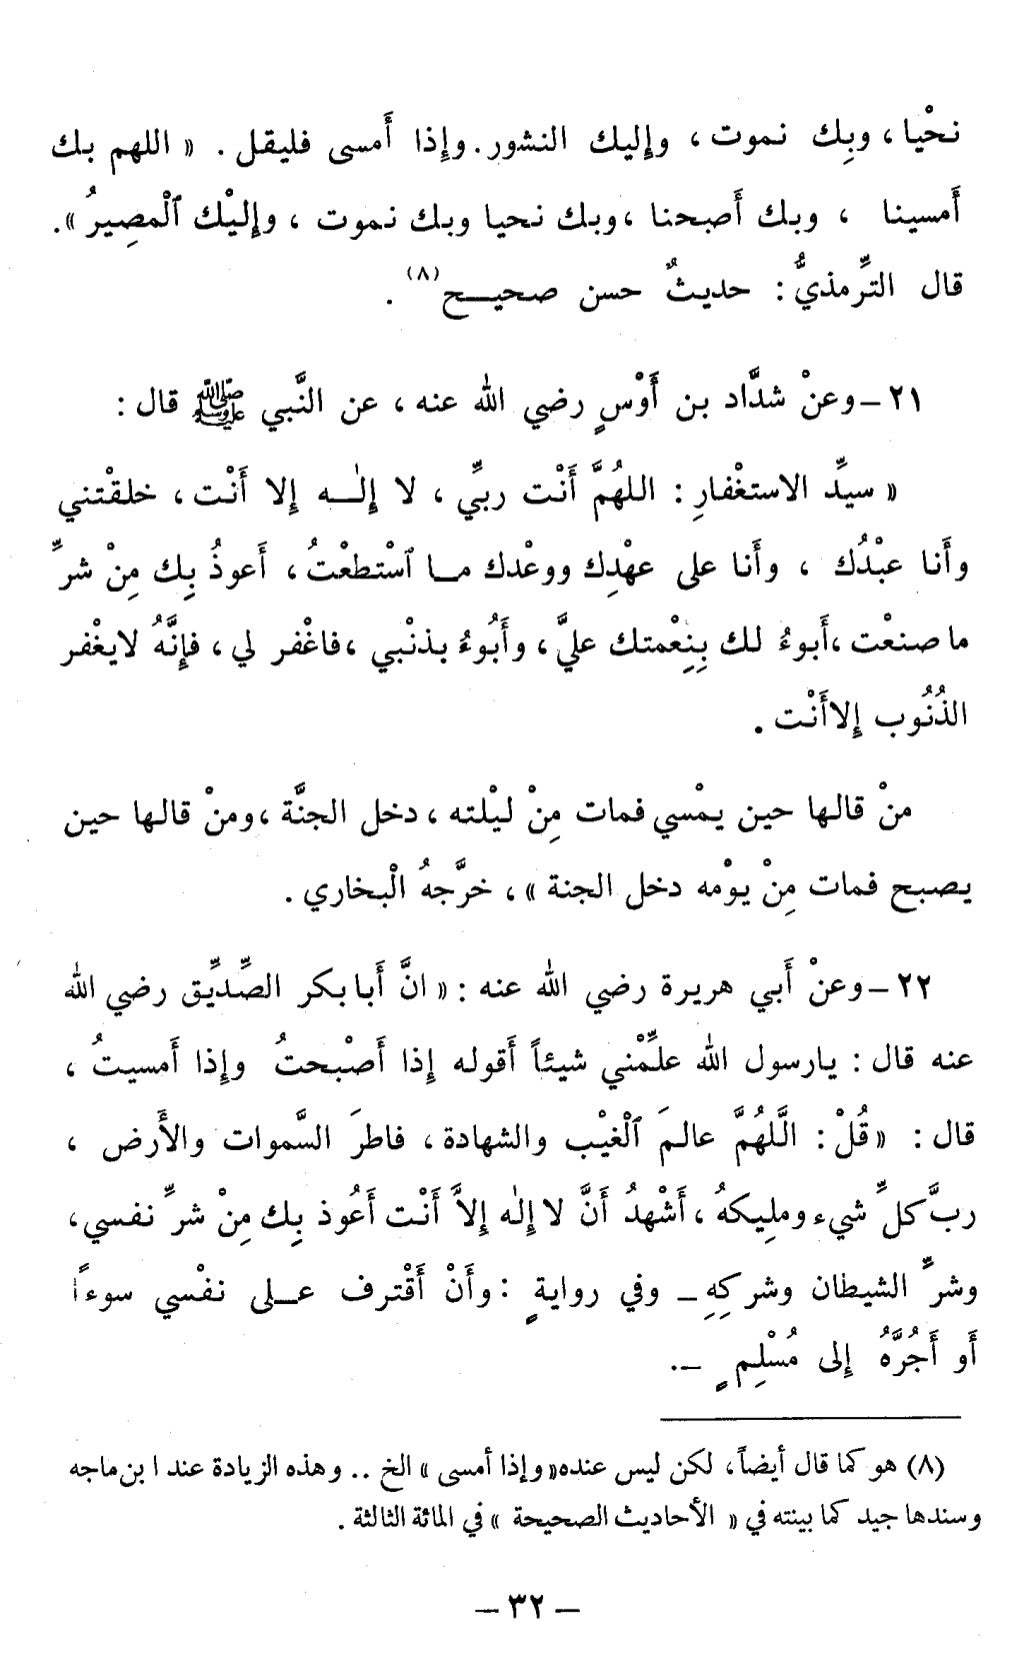 نحْيا ، وبِك نموت ، وإليك النشور . وإِذا أَمسى فليقل . « اللهم بك
أَمسينا ، وبك أَصبحنا ، وبك نحيا وبك نموت ، وإِليْك ٱلْمصِيرُ » .
قال التِّرمذيُّ : حديثٌ حسن صحيـح (٨) .
٢١ – وعنْ شدَّاد بن أَوْسٍ رضي الله عنه ، عن النَّبي ﷺ قال :
« سيِّد الاستغْفارِ : اللهُمَّ أَنْت ربيِّ ، لا إِلٰـه إِلا أَنْت ، خلقْتني
وأَنا عبْدُك ، وأَنا على عهْدِك ووعْدك مـا ٱسْتطعْتُ ، أَعوذُ بِك مِنْ شرِّ
ما صنعْت ، أَبوءُ لك بِنِعْمتك عليَّ ، وأَبُوءُ بذنْبي ، فاغْفر لي ، فإِنَّهُ لايغْفر
الذُنُوب إِلاأَنْت .
منْ قالها حين يمْسي فمات مِنْ ليْلته ، دخل الجنَّة ، ومنْ قالها حين
يصبح فمات مِنْ يوْمه دخل الجنة » ، خرَّجهُ الْبخاري .
٢٢ – وعنْ أَبي هريرة رضي الله عنه : « انَّ أَبابكر الصِّدِّيق رضي الله
عنه قال : يارسول الله علِّمْني شيئاً أَقوله إِذا أَصْبحتُ وإِذا أَمسيتُ ،
قال : « قُلْ : الَّلهُمَّ عالمَ ٱلْغيْب والشهادة ، فاطرَ السَّموات والأَرض ،
ربَّ كلِّ شيء ومليكهُ ، أَشْهدُ أَنَّ لا إِلٰه إِلاَّ أَنْت أَعُوذ بِك مِنْ شرِّ نفسي ،
وشرِّ الشيطان وشركِهِ – وفي روايةٍ : وأَنْ أَقْترف عـلى نفْسي سوءًا
أَو أَجُرَّهُ إِلى مُسْلِمٍ – .
(٨) هو كما قال أيضاً ، لكن ليس عنده « وإذا أمسى » الخ .. وهذه الزيادة عند ابن ماجه
وسندها جيد كما بينته في « الأحاديث الصحيحة » في المائة الثالثة .
– ٣٢ –